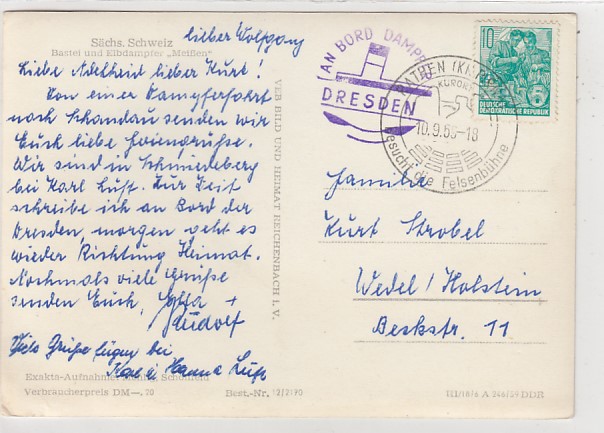 Sächs. Schweiz
Bastei und Elbdampfer „Meißen"
lieber Wolfgang
Liebe Adelheid lieber Kurt!
Von einer Dampferfahrt
nach Schandau senden wir
Euch liebe Feriengrüße.
Wir sind in Schmiedeberg
bei Karl Luft. Zur Zeit
schreibe ich an Bord der
Dresden, morgen geht es
wieder Richtung Heimat.
Nochmals viele Grüße
senden Euch, Jutta +
Rudolf
Viele Grüße fügen bei
Karl u Hanna Luft
Exakta-Aufnahme:
Verbraucherpreis DM —, 20
Best.-Nr. 12/2170
VEB BILD UND HEIMAT REICHENBACH I. V.
AN BORD DAMPF
DRESDEN
RATHEN
KURORT
10.9.60-18
Besucht die Felsenbühne
10
5
DEUTSCHE
DEMOKRATISCHE REPUBLIK
Familie
Kurt Strobel
Wedel / Holstein
Beskstr. 11
III/18/6 A 246/59 DDR